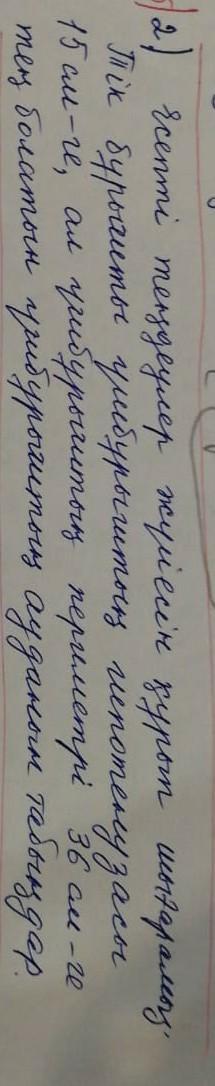 2) Есепті теңдеулер жүйесін құрып шығарамыз.
Тік бұрышты үшбұрыштың гипотенузасы
15 см-ге, ал үшбұрыштың периметрі 36 см-ге
тең болатын үшбұрыштың ауданын табыңдар.